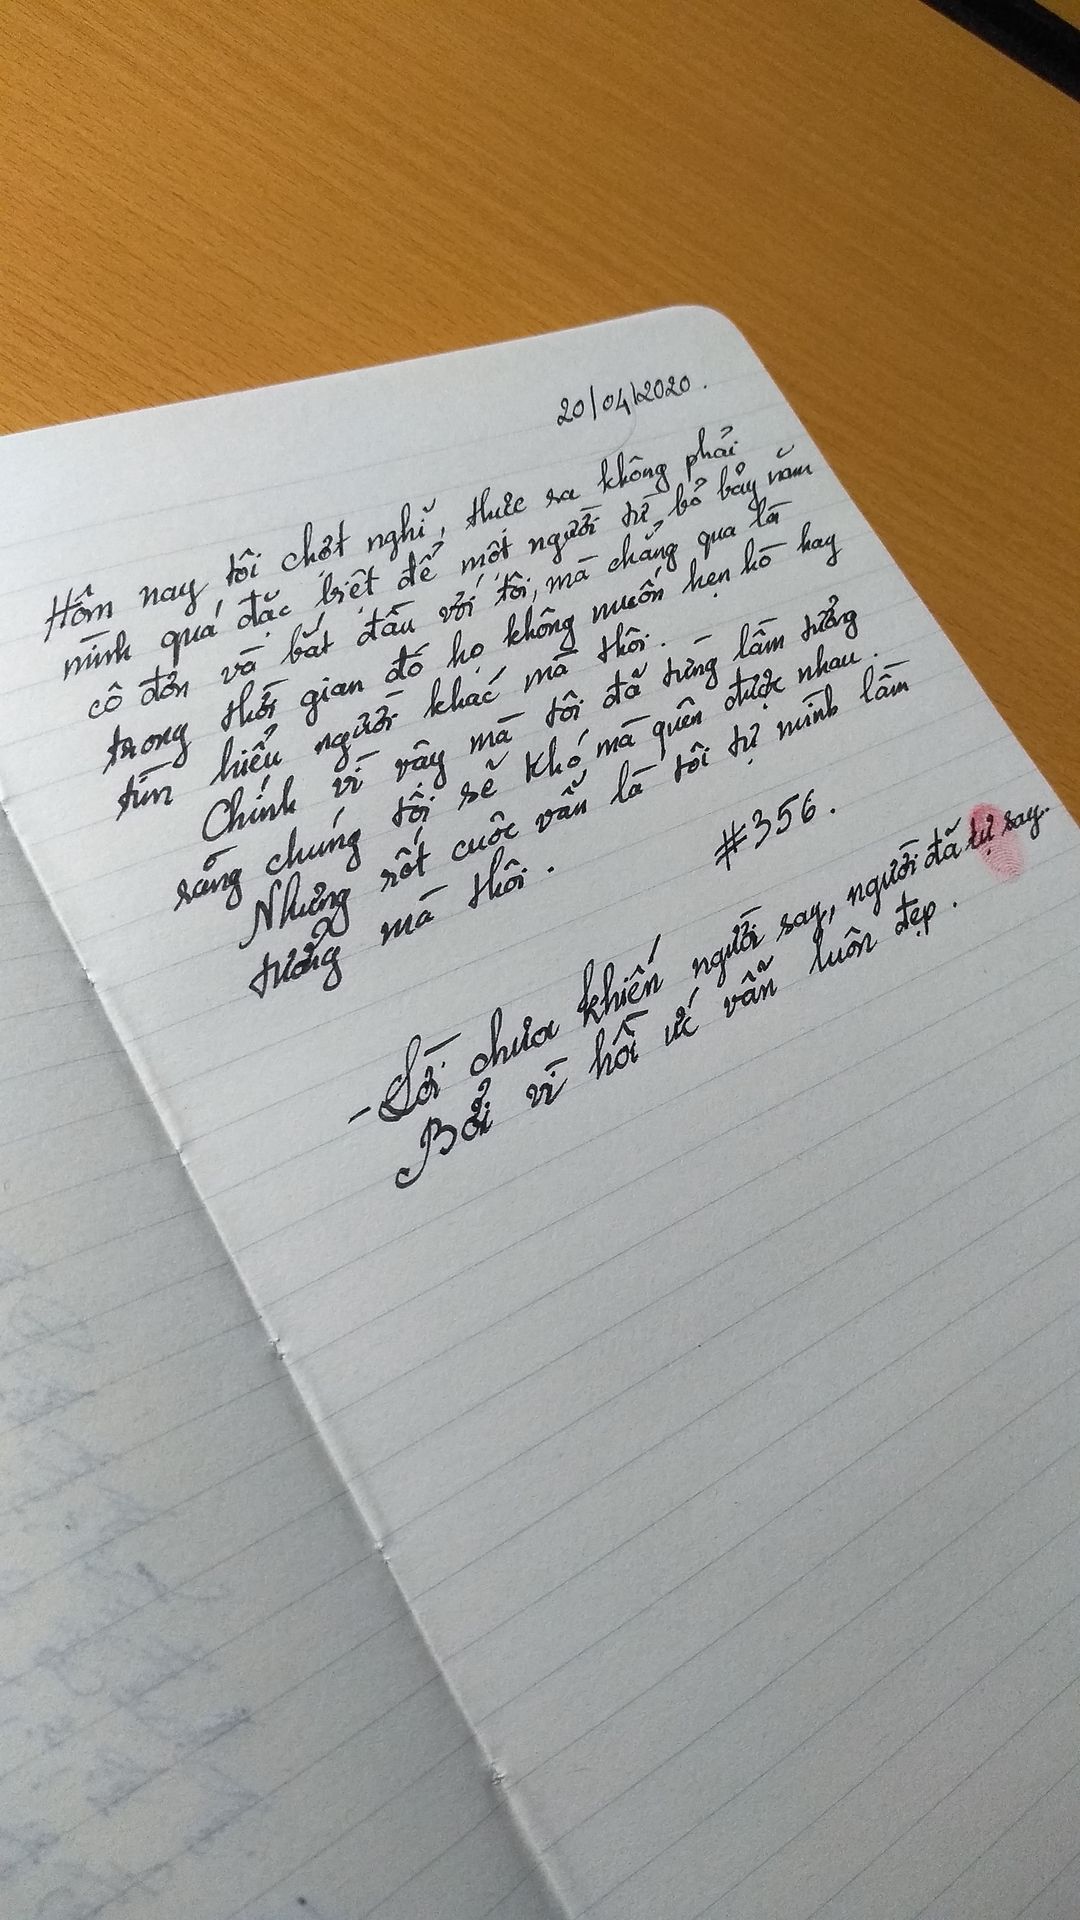 20/04/2020.
Hôm nay tôi chợt nghĩ, thực ra không phải
mình quá đặc biệt để một người từ bỏ bảy năm
cô đơn và bắt đầu với tôi, mà chẳng qua là
trong thời gian đó họ không muốn hẹn hò hay
tìm hiểu người khác mà thôi.
Chính vì vậy mà tôi đã từng lầm tưởng
rằng chúng tôi sẽ khó mà quên được nhau.
Nhưng rốt cuộc vẫn là tôi tự mình lầm
tưởng mà thôi.
#356.
- Lời chưa khiến người say, người đã tự say.
Bởi vì hồi ức vẫn luôn đẹp.